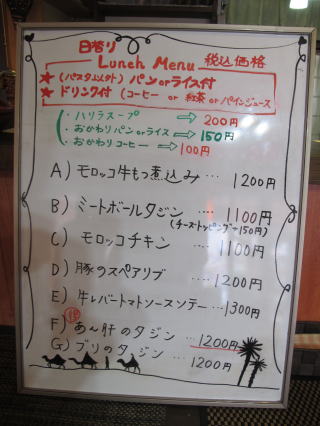 日替り
Lunch Menu 税込価格
★(パスタ以外)パンorライス付
★ドリンク付(コーヒー or 紅茶 or パインジュース
・ハリラスープ ⇒ 200円
・おかわりパンorライス ⇒ 150円
・おかわりコーヒー ⇒ 100円
A) モロッコ牛もつ煮込み… 1200円
B) ミートボールタジン … 1100円
(チーズトッピング+150円)
C) モロッコチキン … 1100円
D) 豚のスペアリブ … 1200円
E) 牛レバートマトソースソテー… 1300円
F) あん肝のタジン … 1200円
G) ブリのタジン … 1200円